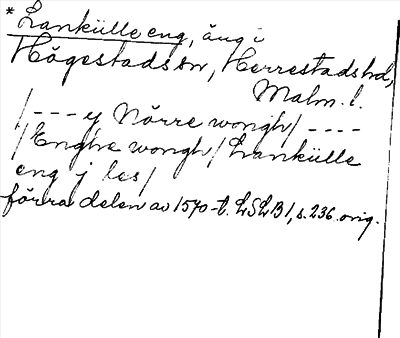 * Lankülle eng, äng i
Högestads sn, Herrestads hd,
Malm. l.
/ --- y Nörre wongh/ ----
/Enghe wongh/ Lankülle
eng j les/
förra delen av 1570-t. LSLB1, s. 236. orig.